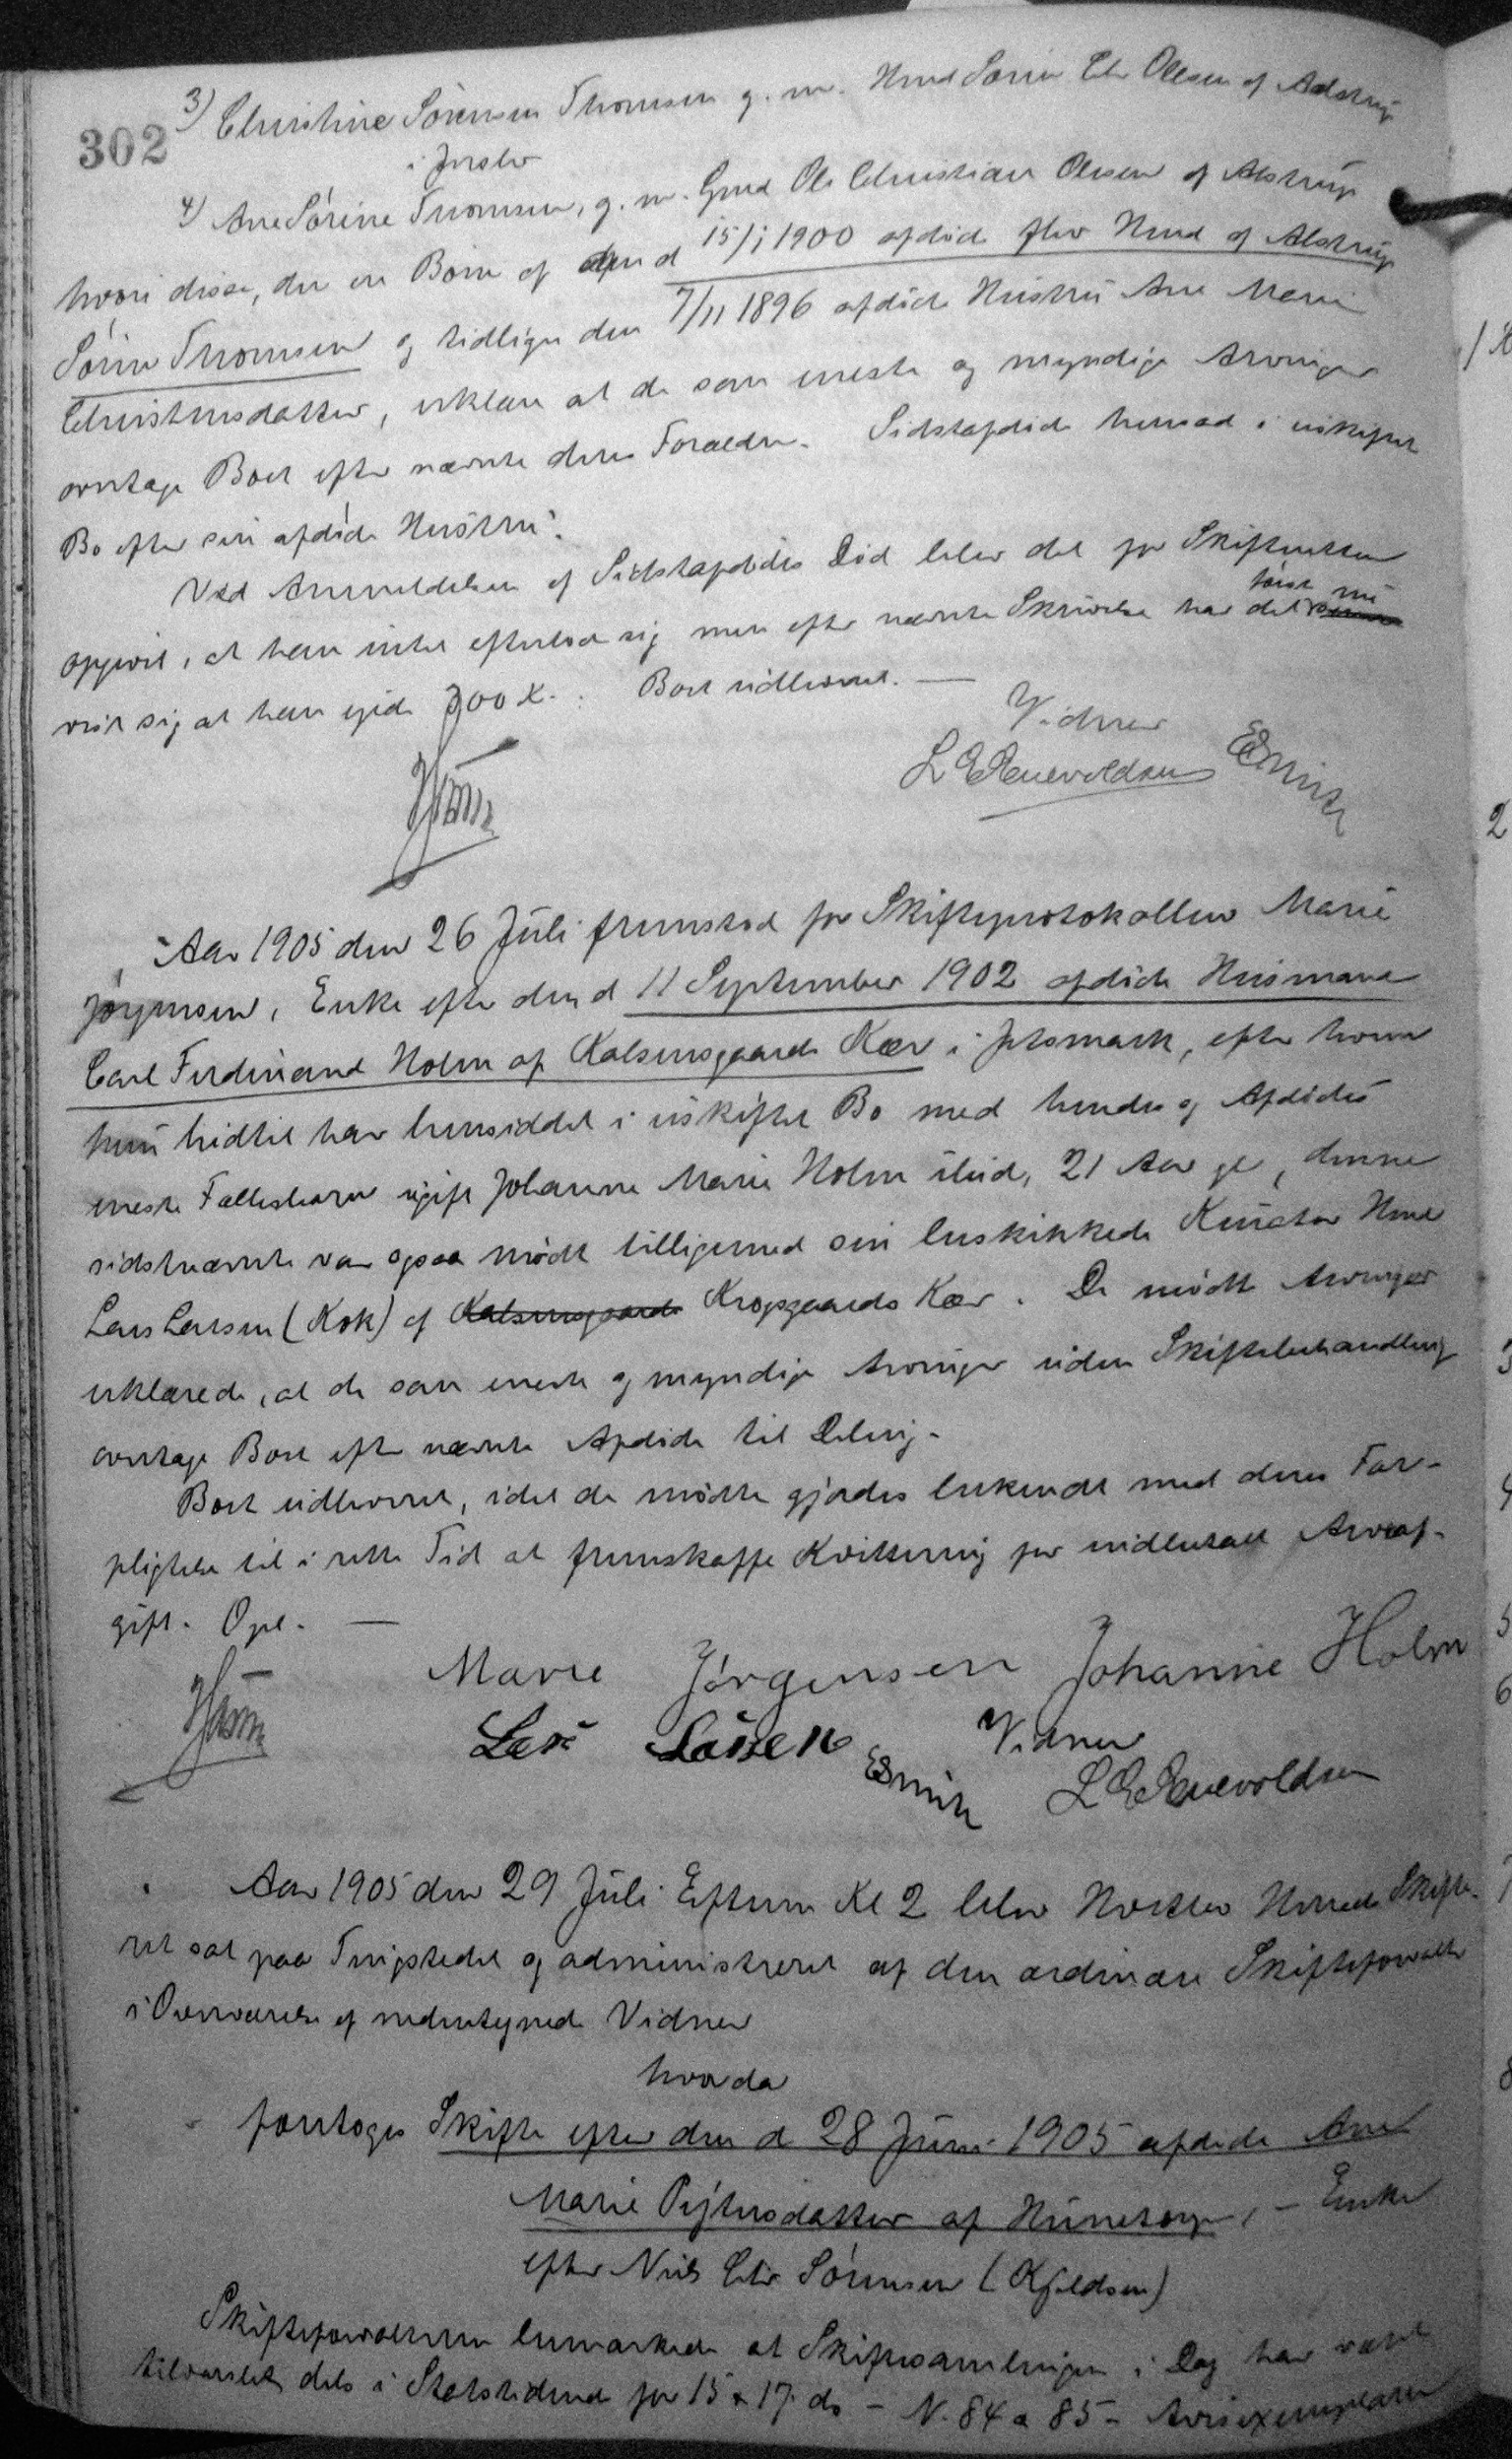 302
3) Christine Sørensen Thomsen g. m. Hmd Søren Chr Olesen af Adstrup
i Jerslev
4) Ane Sørine Thomsen, g. m. Gmd Ole Christian Olesen af Alstrup
hvori disse, der ere Børn af den d 15/1 1900 afdøde fhv Hmd af Alstrup
Søren Thomsen og tidligere den 7/11 1896 afdøde Hustru Ane Marie
Christensdatter, erklære at de som eneste og myndige Arvinger
overtage Boet efter nævnte deres Forældre. Sidstafdøde hensad i uskiftet
Bo efter sin afdøde Hustru.
Ved Anmeldelsen af Sidstafdødes Død blev det for Skifteretten
opgivet, at han intet efterlod sig men efter nævnte Skrivelse har det først nu
vist sig at han ejede 300 K. Boet udleveret. —
Vidner
L E Enevoldsen ESmith
Aar 1905 den 26 Juli fremstod for Skifteprotokollen Marie
Jørgensen, Enke efter den d 11 September 1902 afdøde Husmand
Carl Ferdinand Holm af Kalsensgaards Kær i Jetsmark, efter hvem
hun hidtil har hensiddet i uskiftet Bo med hendes og Afdødes
eneste Fællesbarn ugift Johanne Marie Holm ibid, 21 Aar gl, denne
sidstnævnte var ogsaa mødt tilligemed sin beskikkede Kurator Hmd
Lars Larsen (Kok) af Kalsensgaards Kropgaards Kær. De mødte Arvinger
erklærede, at de som eneste og myndige Arvinger uden Skiftebehandling
overtage Boet efter nævnte Afdøde til Deling.
Boet udleveret, idet de mødte gjordes bekendt med deres For-
pligtelse til i rette Tid at fremskaffe Kvittering for indbetalt Arveaf-
gift. Opl. —
Marie Jørgensen Johanne Holm
Lars Larsen
Vidner
ESmith L E Enevoldsen
Aar 1905 den 29 Juli Efterm Kl 2 blev Hvetbo Herreds Skifte-
ret sat paa Tingstedet og administreret af den ordinære Skifteforvalter
i Overværelse af undertegnede Vidner
hvorda
foretoges Skifte efter den d 28 Juni 1905 afdøde Ane
Marie Pejtersdatter af Hunetorp, – Enke
efter Niels Chr Sørensen (Kjeldsen)
Skifteforvalteren bemærkede at Skiftesamlingen i Dag har været
tilvarslet dels i Statstidende for 15 & 17 ds – N. 84 a 85 – Avisexemplaren